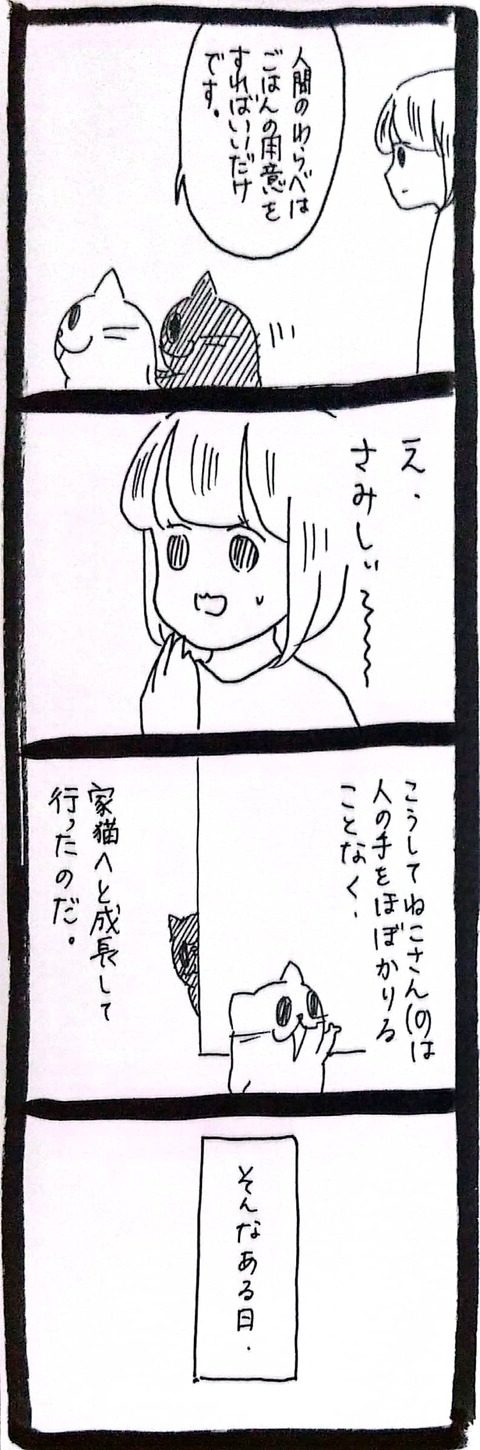 人間のわらべは
ごはんの用意を
すればいいだけ
です。
え、
さみしい〜〜〜
こうしてねこさん(の)は
人の手をほぼかりる
ことなく、
家猫へと成長して
行ったのだ。
そんなある日、